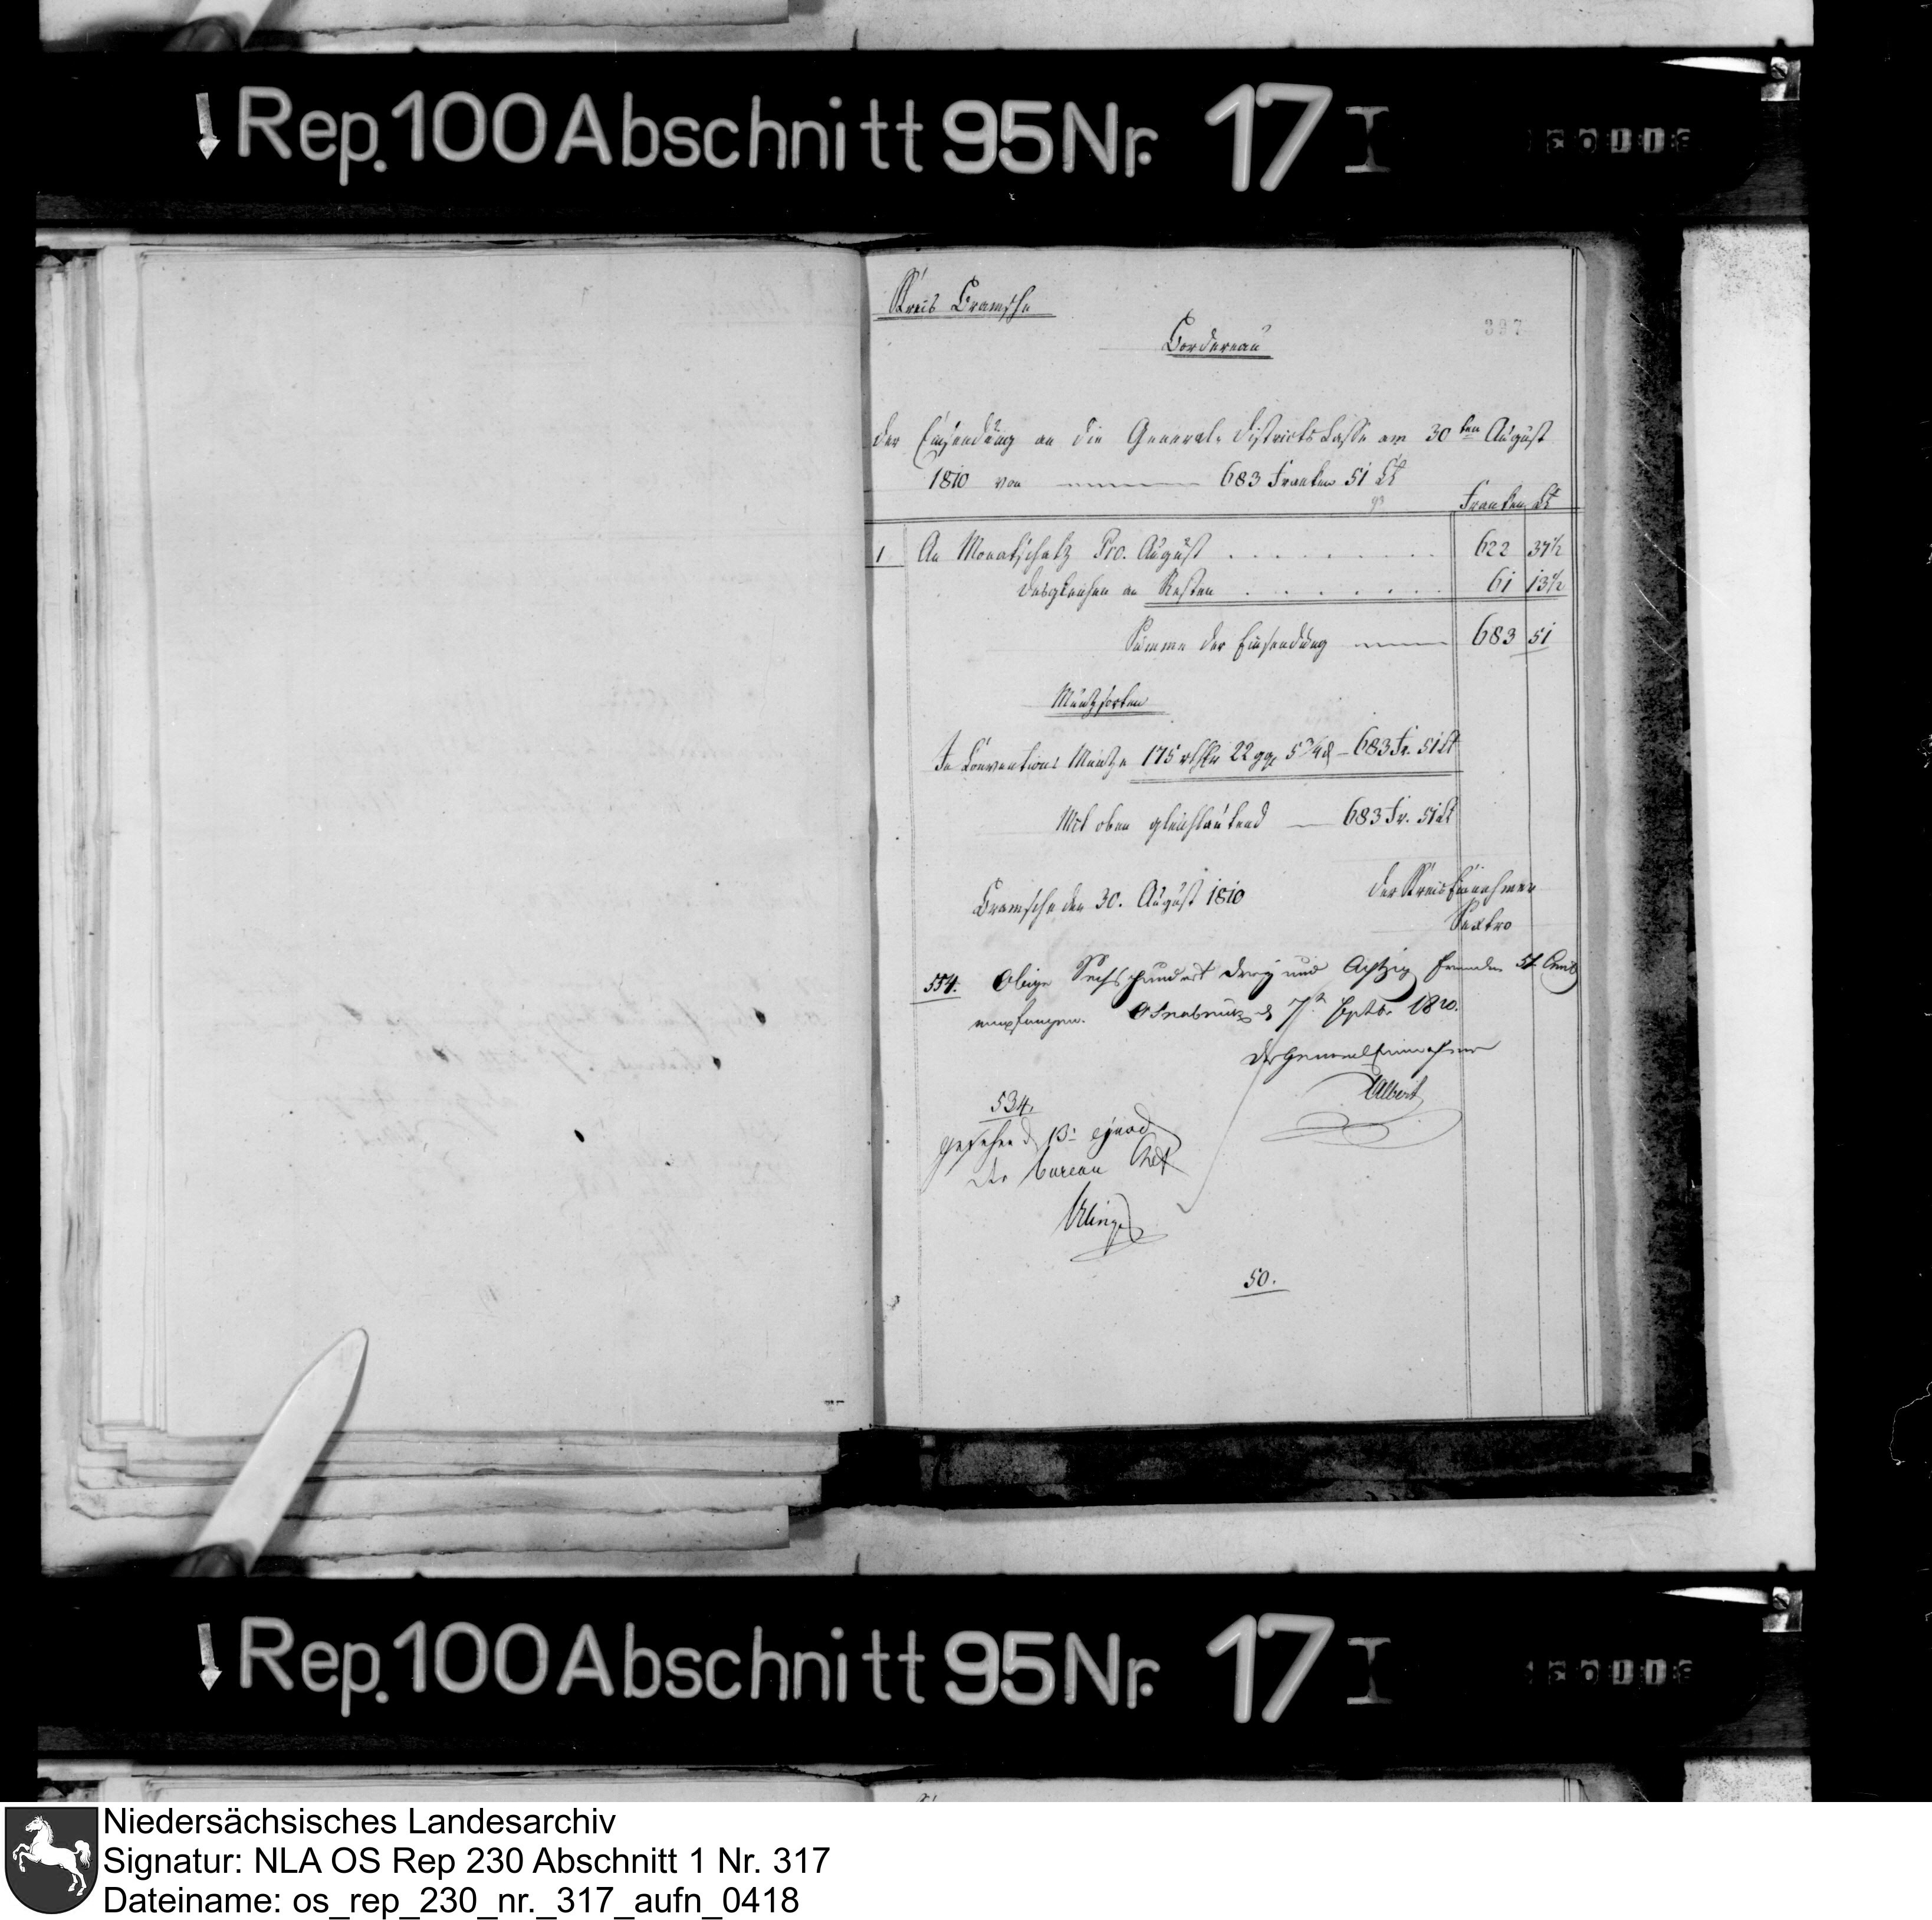 Rep. 100 Abschnitt 95 Nr. 17 I
Kreis Bramsche
397
Bordereau
der Einsendung an die General-Districts Casse am 30ten August
1810 von 683 Franken 51 Ct
Franken Ct
1 An Monatschatz Pro. August . . . . . . . . . 622 37½
desgleichen an Resten . . . . . . . 61 13½
Summe der Einsendung 683 51
Müntzsorten
In Conventions Müntze 175 rthlr 22 ggr 5¾ d – 683 Fr. 51 Ct
Mit oben gleichlautend — 683 Fr. 51 Ct
Bramsche den 30. August 1810
der Kreis Einnehmer
Sextro
554. Obige Sechshundert drey und Achtzig Franken 51 Cents
empfangen. Osnabrück d 7t Septbr 1810.
Der General Einnehmer
Albert
534.
gesehen d 13t ejusd
der Bureau Chef
50.
Rep. 100 Abschnitt 95 Nr. 17 I
Niedersächsisches Landesarchiv
Signatur: NLA OS Rep 230 Abschnitt 1 Nr. 317
Dateiname: os_rep_230_nr._317_aufn_0418